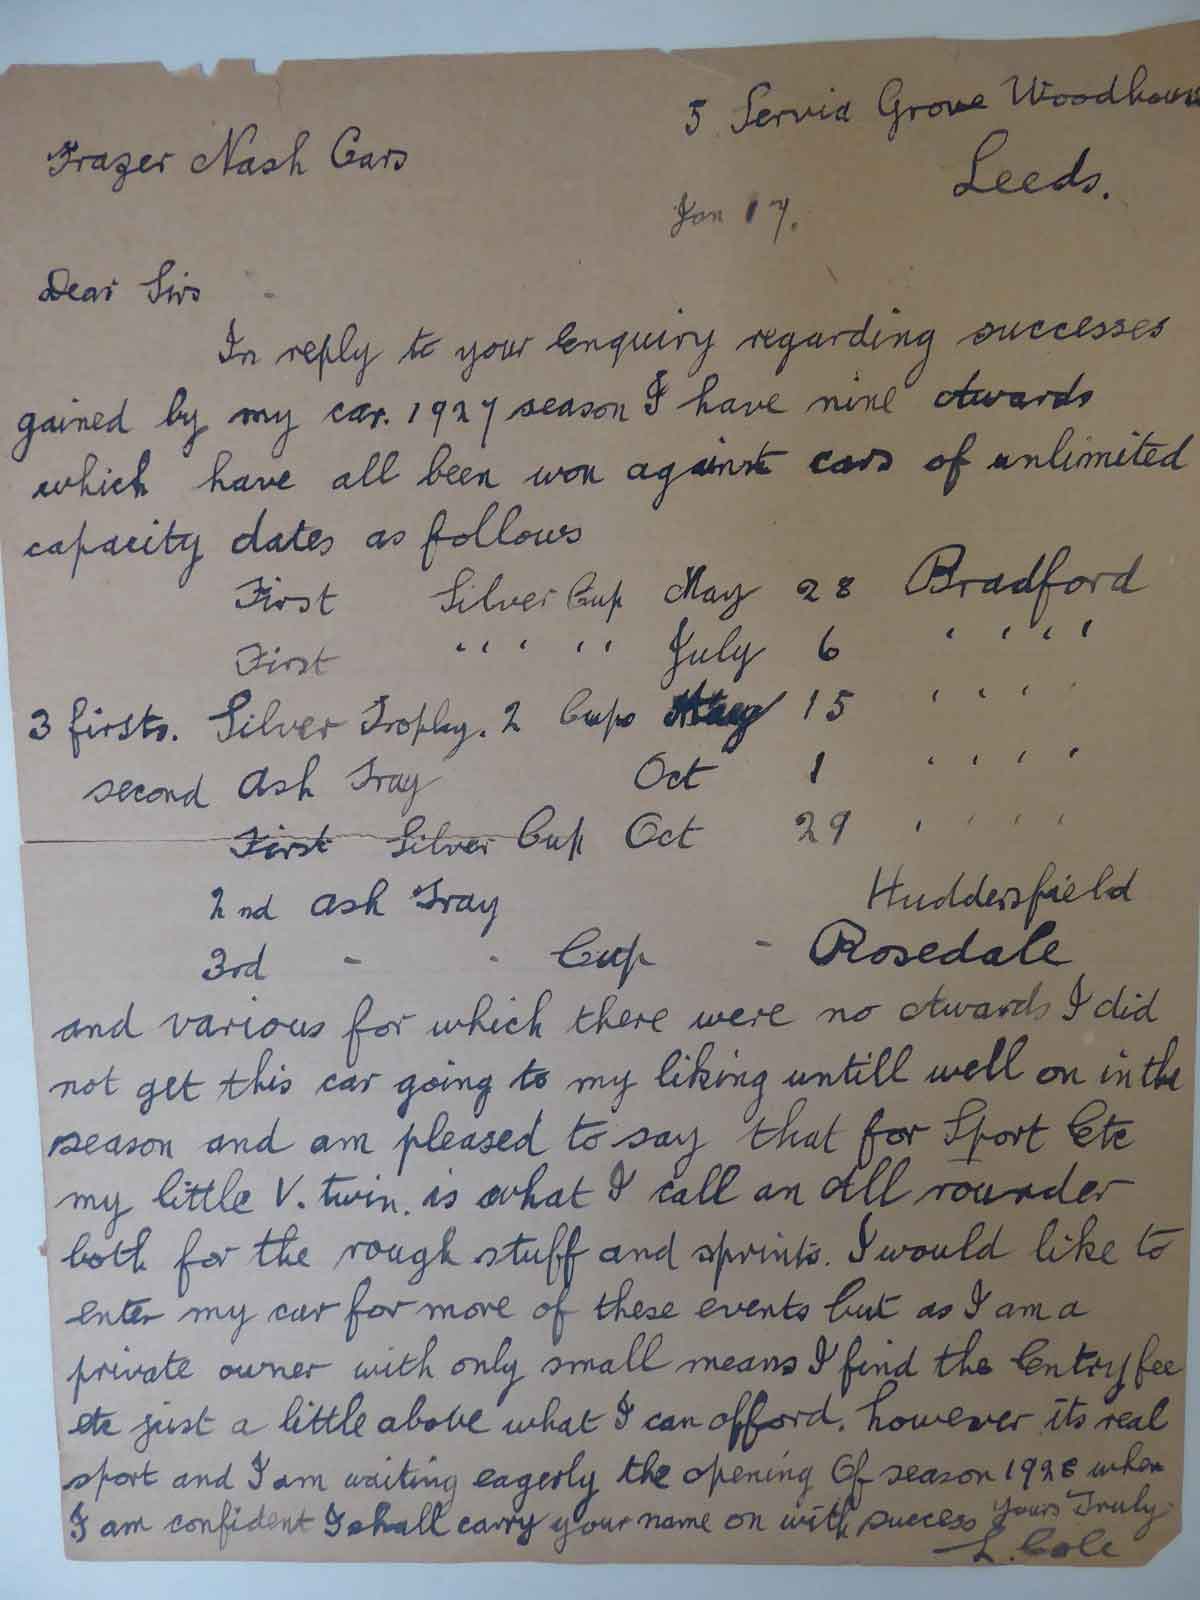 5 Servia Grove Woodhouse
Frazer Nash Cars
Leeds.
Jan 17.
Dear Sirs
In reply to your Enquiry regarding successes
gained by my car. 1927 season I have nine Awards
which have all been won against cars of unlimited
capacity dates as follows
First Silver Cup May 28 Bradford
First " " " " July 6 " " " "
3 firsts. Silver Trophy. 2 Cups 15 " " " "
second Ash Tray Oct 1 " " " "
First Silver Cup Oct 29 " " " "
2nd Ash Tray Huddersfield
3rd - - Cup - Rosedale
and various for which there were no Awards I did
not get this car going to my liking untill well on in the
season and am pleased to say that for Sport Etc
my little V. twin. is what I call an All rounder
both for the rough stuff and sprints. I would like to
enter my car for more of these events but as I am a
private owner with only small means I find the Entry fee
etc just a little above what I can afford. however its real
sport and I am waiting eagerly the opening Of season 1928 when
I am confident I shall carry your name on with success Yours Truly
L. Cole